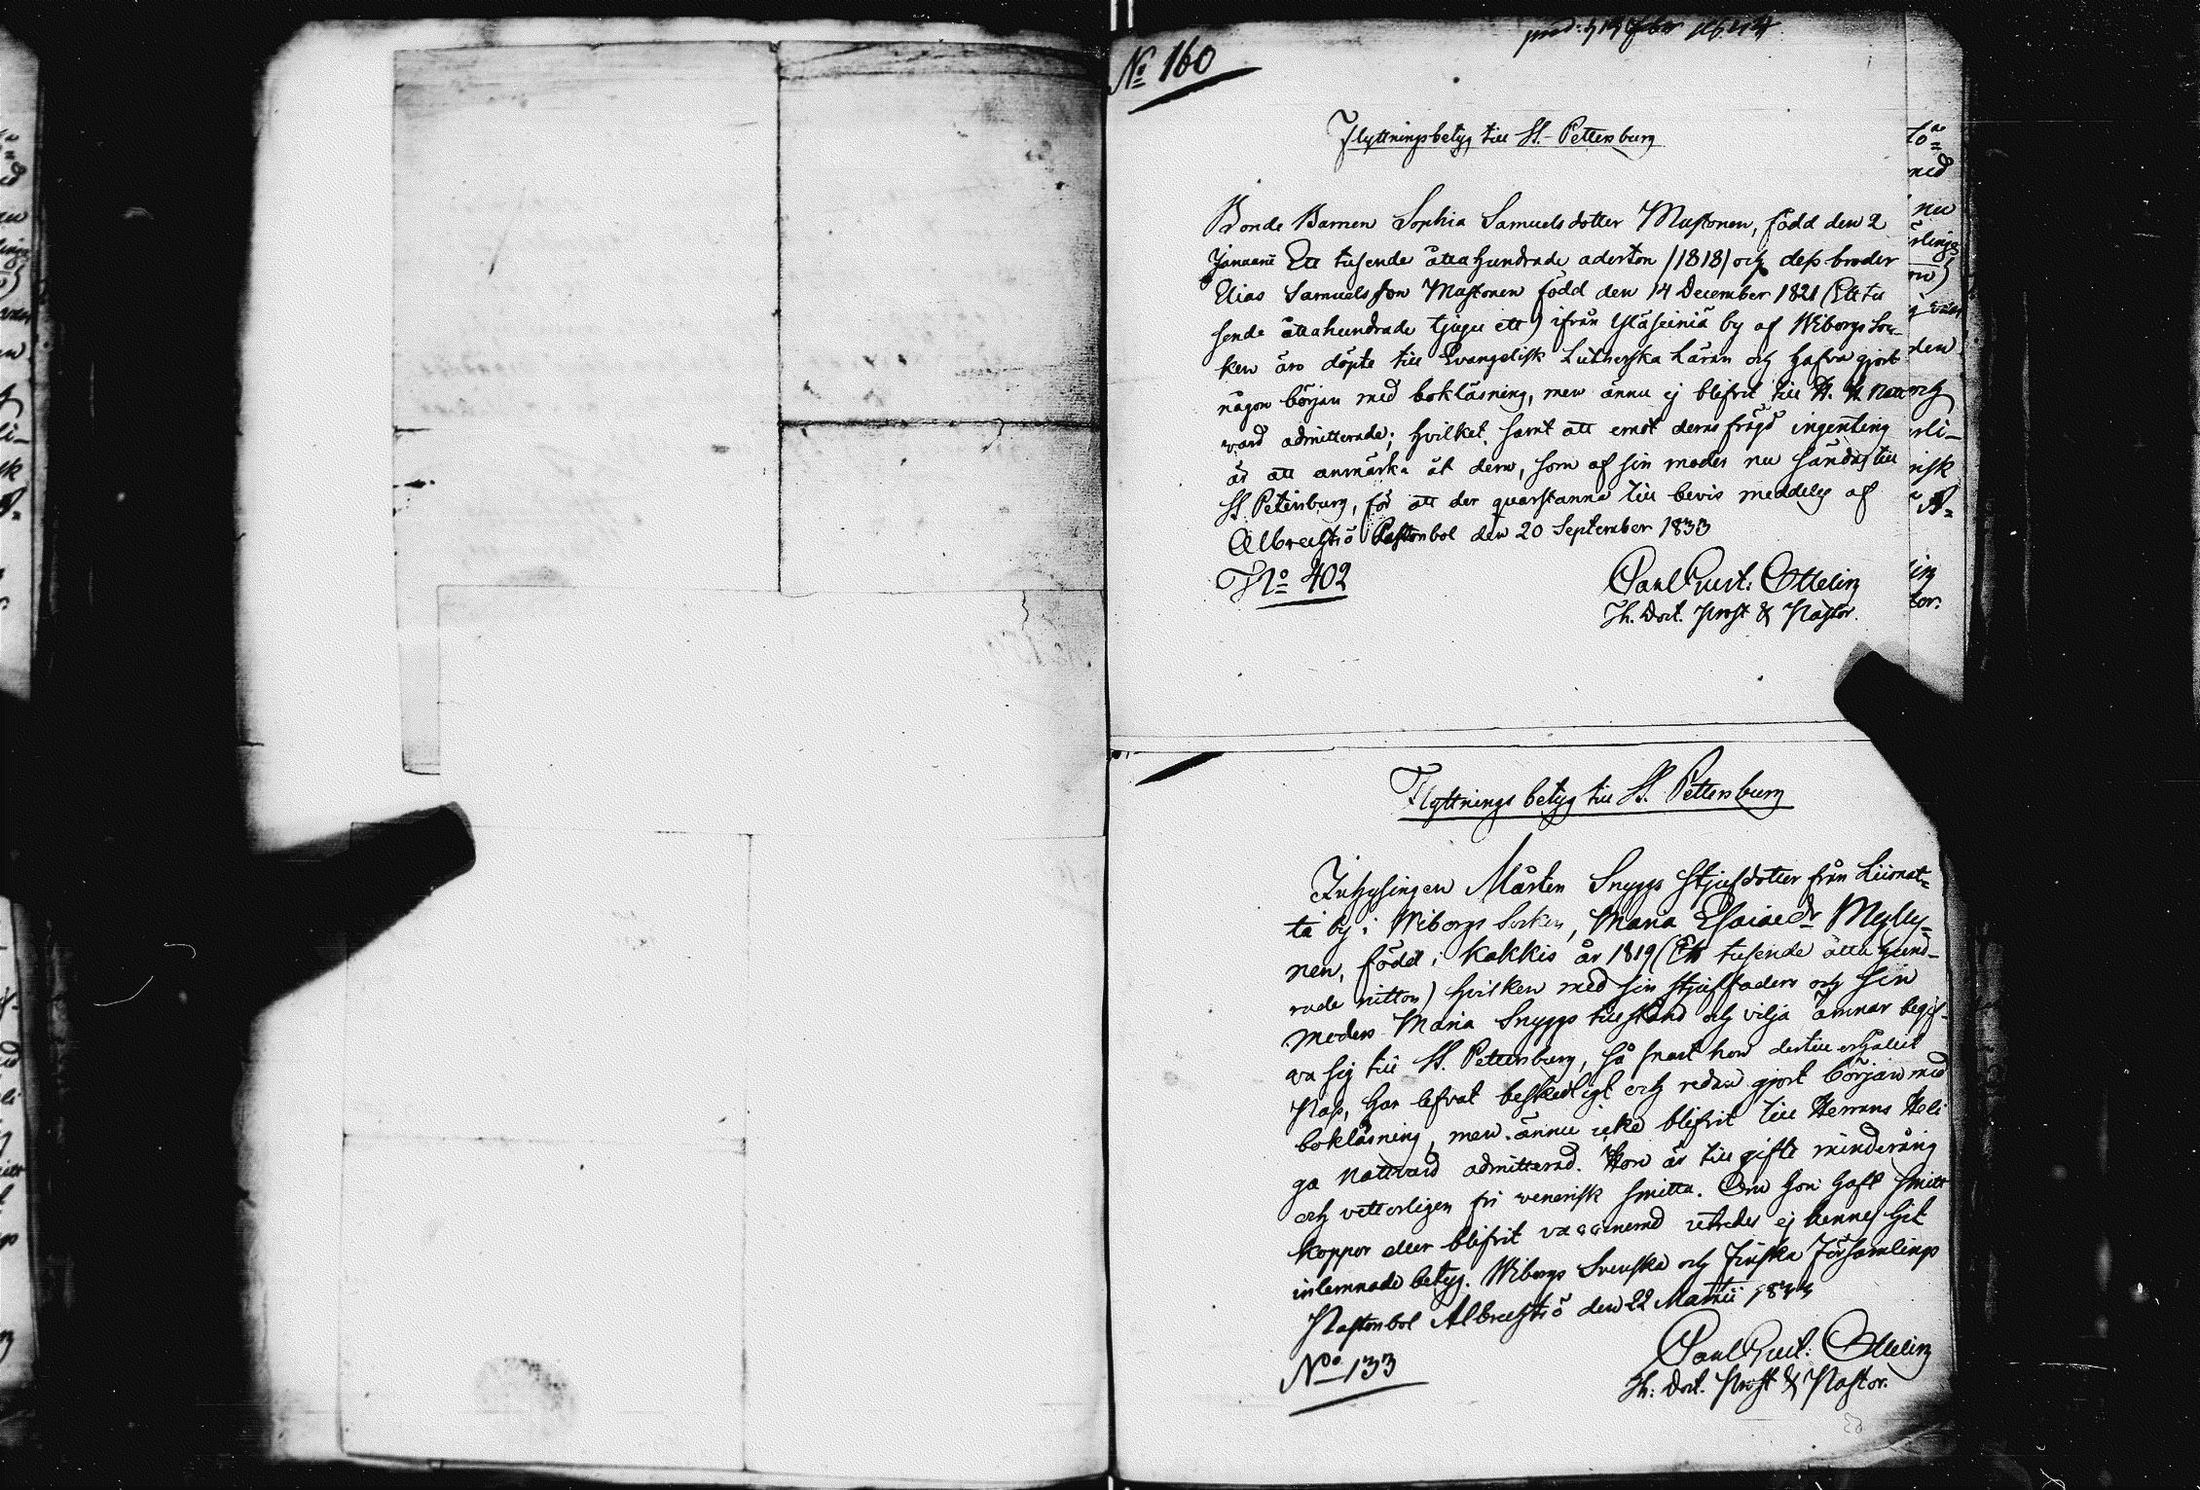 No 160
Flyttningsbetyg till St. Pettersburg
Bonde Barnen Sophia Samuelsdotter Mustonen, född den 2
Januarii Ett tusende åttahundrade aderton /1818/ och dess broder
Elias Samuelsson Mustonen född den 14 December 1821 (Ett tu
sende åttahundrade tjugu ett) ifrån Yläseiniä by af Wiborgs Soc-
ken äro döpte till Evangelisk Lutherska Läran och hafva gjort
någon början med bokläsning, men ännu ej blifvit till H. H. Natt
vard admitterade; hvilket, samt att emot deras frägd ingenting
är att anmärka åt dem, som af sin moder nu sändas till
St Petersburg, för att der quarstanna till bevis meddelas af
Albrechtsö Pastorsbol den 20 September 1833
No 402
Paul Gust: Ottelin
Th. Doct. Prost & Pastor.
Flyttnings betyg till St. Pettersburg
Inhysingen Mårten Snyggs Stjufdotter från Liimat-
ta by i Wiborgs Socken, Maria Esaiaedr Mylly-
nen, född i Kakkis år 1819 (Ett tusende åtta hund-
rade nitton) hvilken med sin stjuffaders och sin
moders Maria Snyggs tillstånd och vilja ämnar begif-
va sig till St. Pettersburg, så snart hon dertill erhållit
Pass, har lefvat beskedligt och redan gjort början med
bokläsning, men ännu icke blifvit till Herrans Heli
ga nattvard admitterad. Hon är till gifte minderårig
och vetterligen fri venerisk smitta. Om hon haft smitt
koppor eller blifvit vaccinerad utredes ej hennes hit
inlemnade betyg. Wiborgs Svenska och Finska Församlings
Pastorsbol Albrechtsö den 22 Martii
No 133
Paul Gust: Ottelin
Th: Doct. Prost & Pastor.